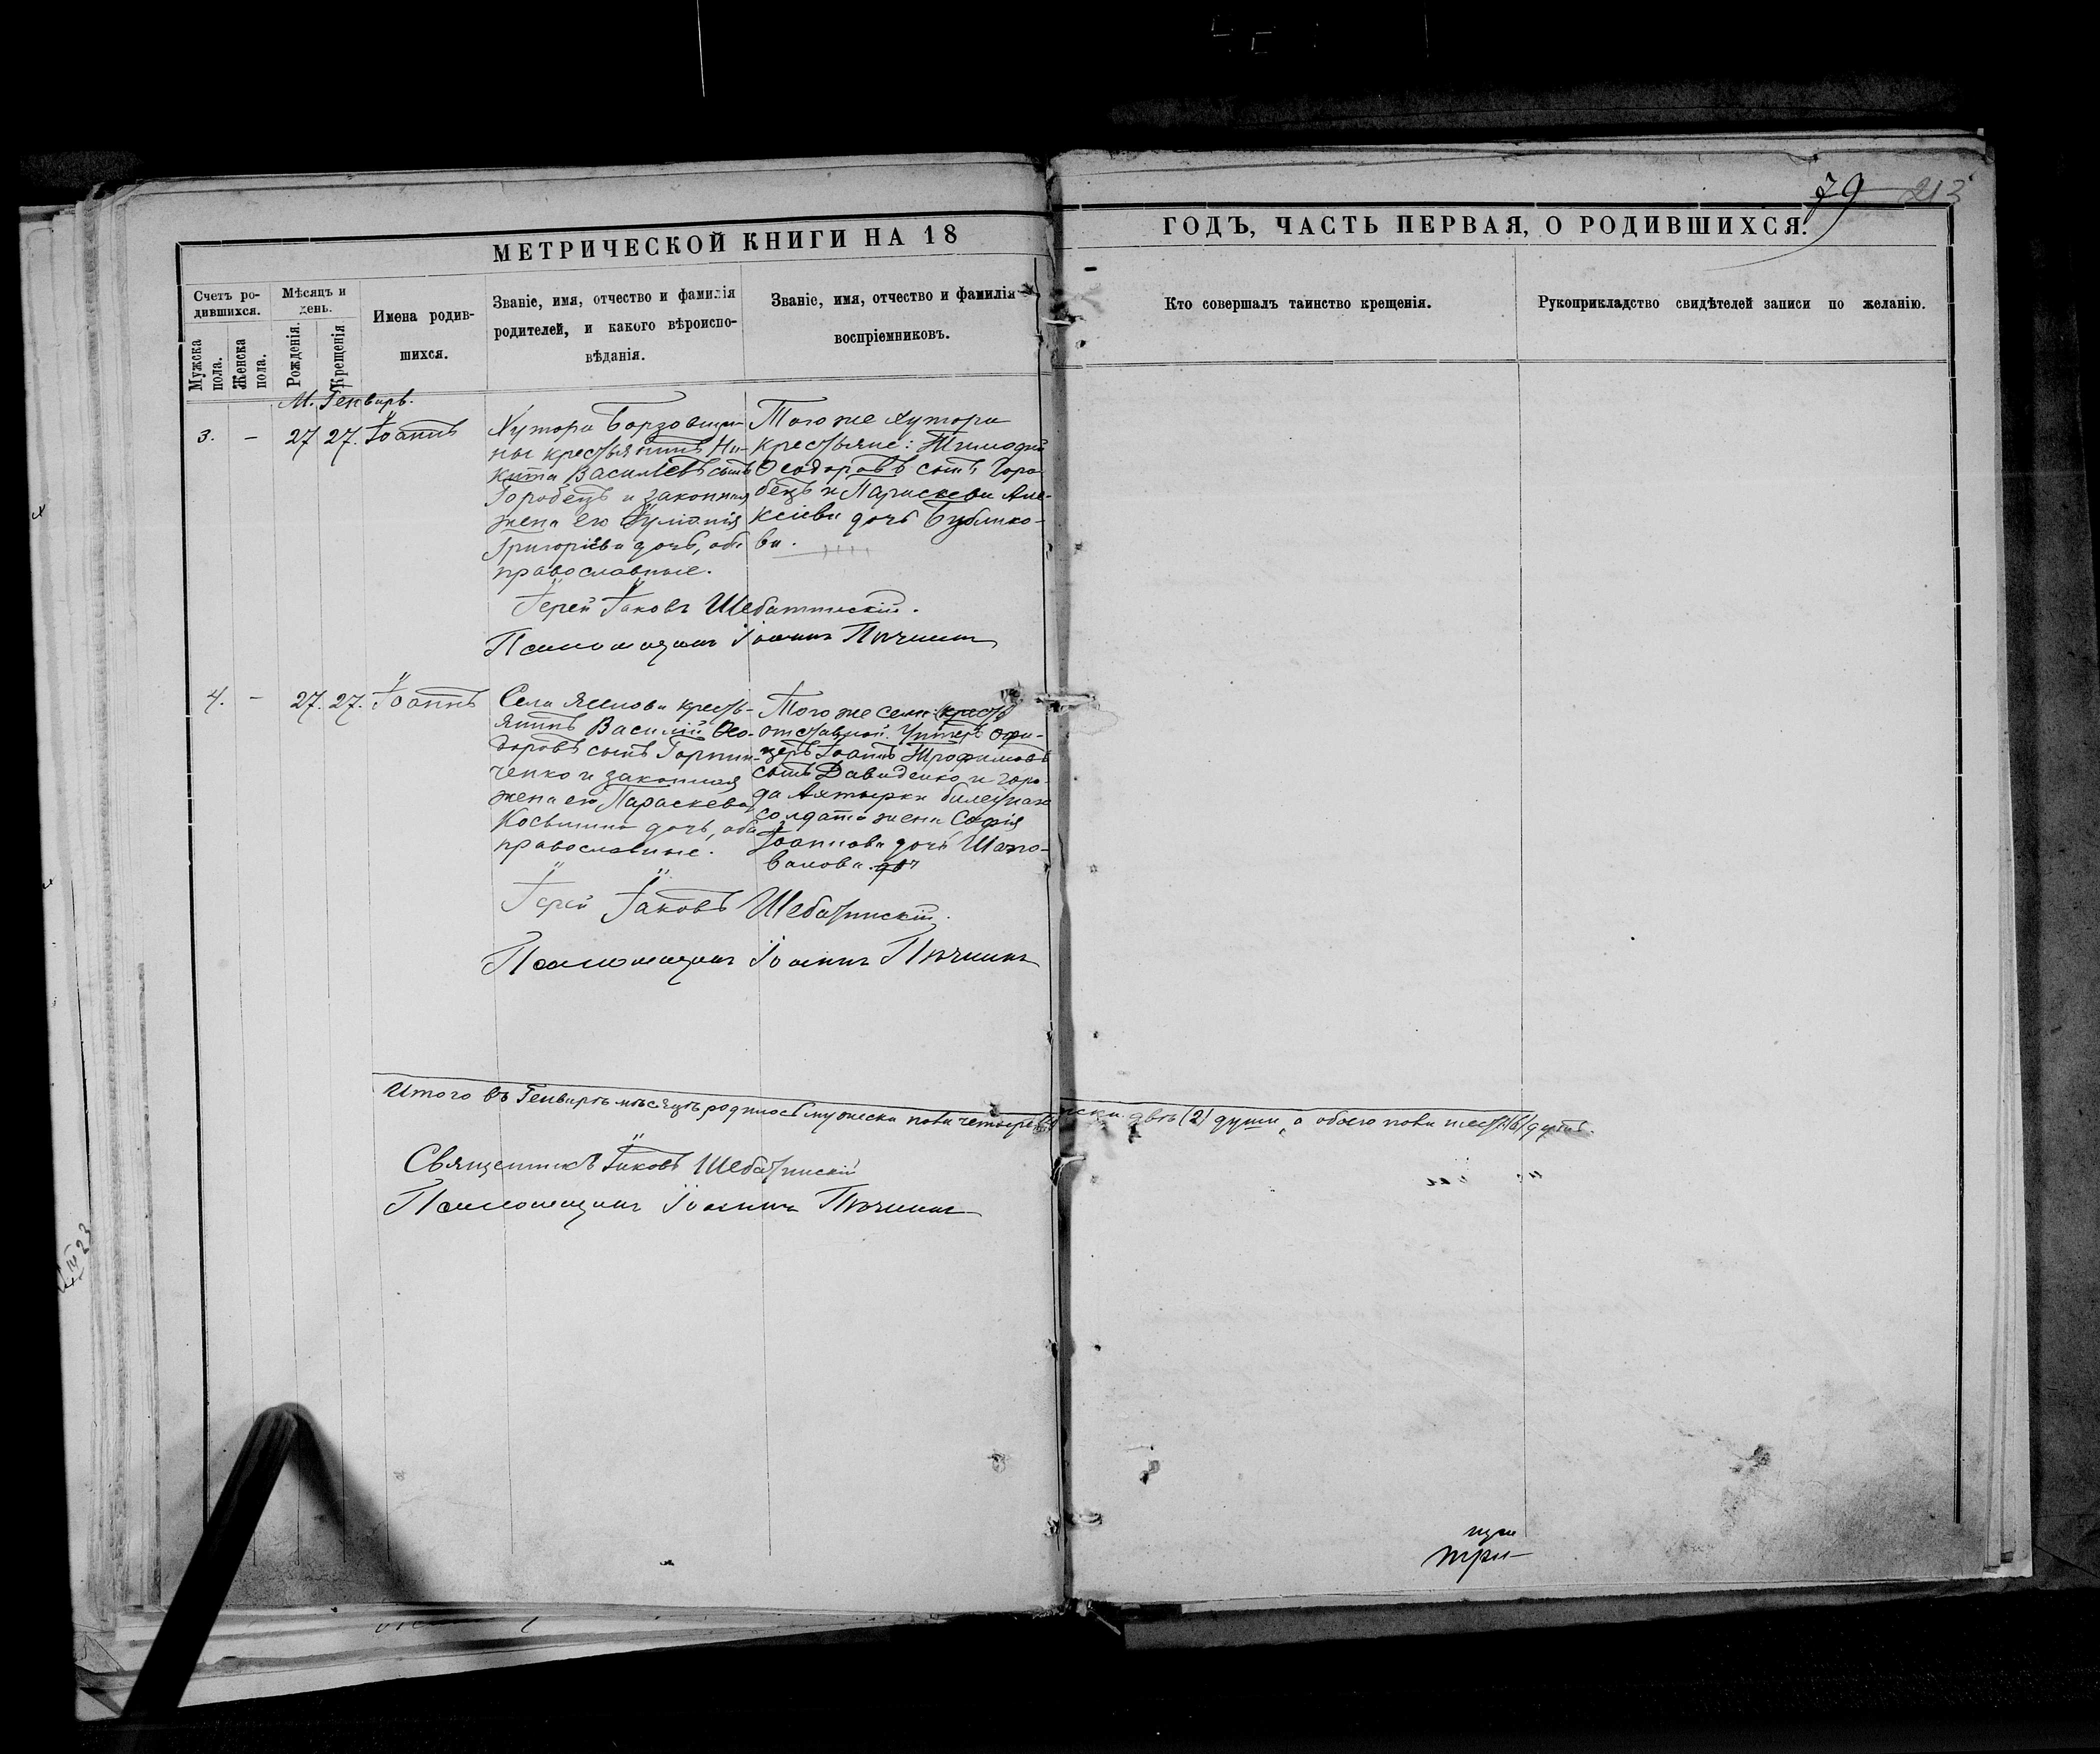 79 213
МЕТРИЧЕСКОЙ КНИГИ НА 18
ГОДЪ, ЧАСТЬ ПЕРВАЯ, О РОДИВШИХСЯ.
Счетъ ро-
дившихся.
Мужска
пола.
Женска
пола.
Мѣсяцъ и
день.
Рожденія.
Крещенія
Имена родив-
шихся.
Званіе, имя, отчество и фамилія
родителей, и какого вѣроиспо-
вѣданія.
Званіе, имя, отчество и фамилія
воспріемниковъ.
Кто совершалъ таинство крещенія.
Рукоприкладство свидѣтелей записи по желанію.
М. Генварь.
3. – 27 27. Іоаннъ
Хутора Борзовщи-
ны крестьянинъ Ни-
кита Василіевъ сынъ
Горобецъ и законная
жена его Іуліанія
Григоріева дочь, оба
православные.
Того же хутора
крестьяне: Тимофей
Ѳеодоровъ сынъ Горо
бецъ и Параскева Але-
ксіева дочь Бублико-
ва.
Іерей Іаковъ Шебатинскій.
Псаломщикъ Іоаннъ
4. – 27. 27. Іоаннъ
Села Ясенова кресть-
янинъ Василій Ѳео-
доровъ сынъ Горпин-
ченко и законная
жена его Параскева
Косьмина дочь, оба
православные.
Того же села
отставной Унтеръ офи-
церъ Іоаннъ Трофимовъ
сынъ Давиденко и горо-
да Ахтырки билетнаго
солдата жена Софія
Іоаннова дочь Шапо-
валова.
Іерей Іаковъ Шебатинскій.
Псаломщикъ Іоаннъ
Итого въ Генварѣ мѣсяцѣ родилось мужеска пола четыре
двѣ (2) души, а обоего пола шесть (6) душъ.
Священникъ Іаковъ Шебатинскій
Псаломщикъ Іоаннъ
три